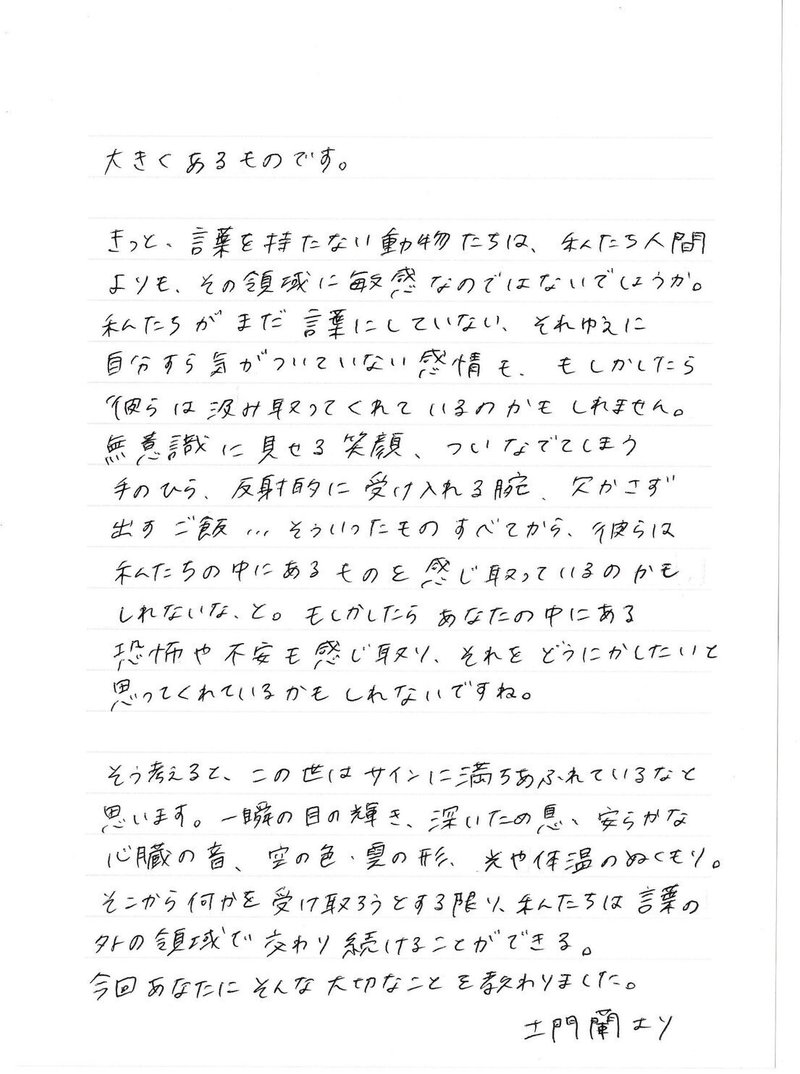 大きくあるものです。
きっと、言葉を持たない動物たちは、私たち人間
よりも、その領域に敏感なのではないでしょうか。
私たちがまだ言葉にしていない、それゆえに
自分すら気がついていない感情も、もしかしたら
彼らは汲み取ってくれているのかもしれません。
無意識に見せる笑顔、ついなでてしまう
手のひら、反射的に受け入れる腕、欠かさず
出すご飯…そういったものすべてから、彼らは
私たちの中にあるものを感じ取っているのかも
しれないな、と。もしかしたらあなたの中にある
恐怖や不安も感じ取り、それをどうにかしたいと
思ってくれているかもしれないですね。
そう考えると、この世はサインに満ちあふれているなと
思います。一瞬の目の輝き、深いため息、安らかな
心臓の音、空の色・雲の形、光や体温のぬくもり。
そこから何かを受け取ろうとする限り、私たちは言葉の
外の領域で交わり続けることができる。
今回あなたにそんな大切なことを教わりました。
土門蘭より